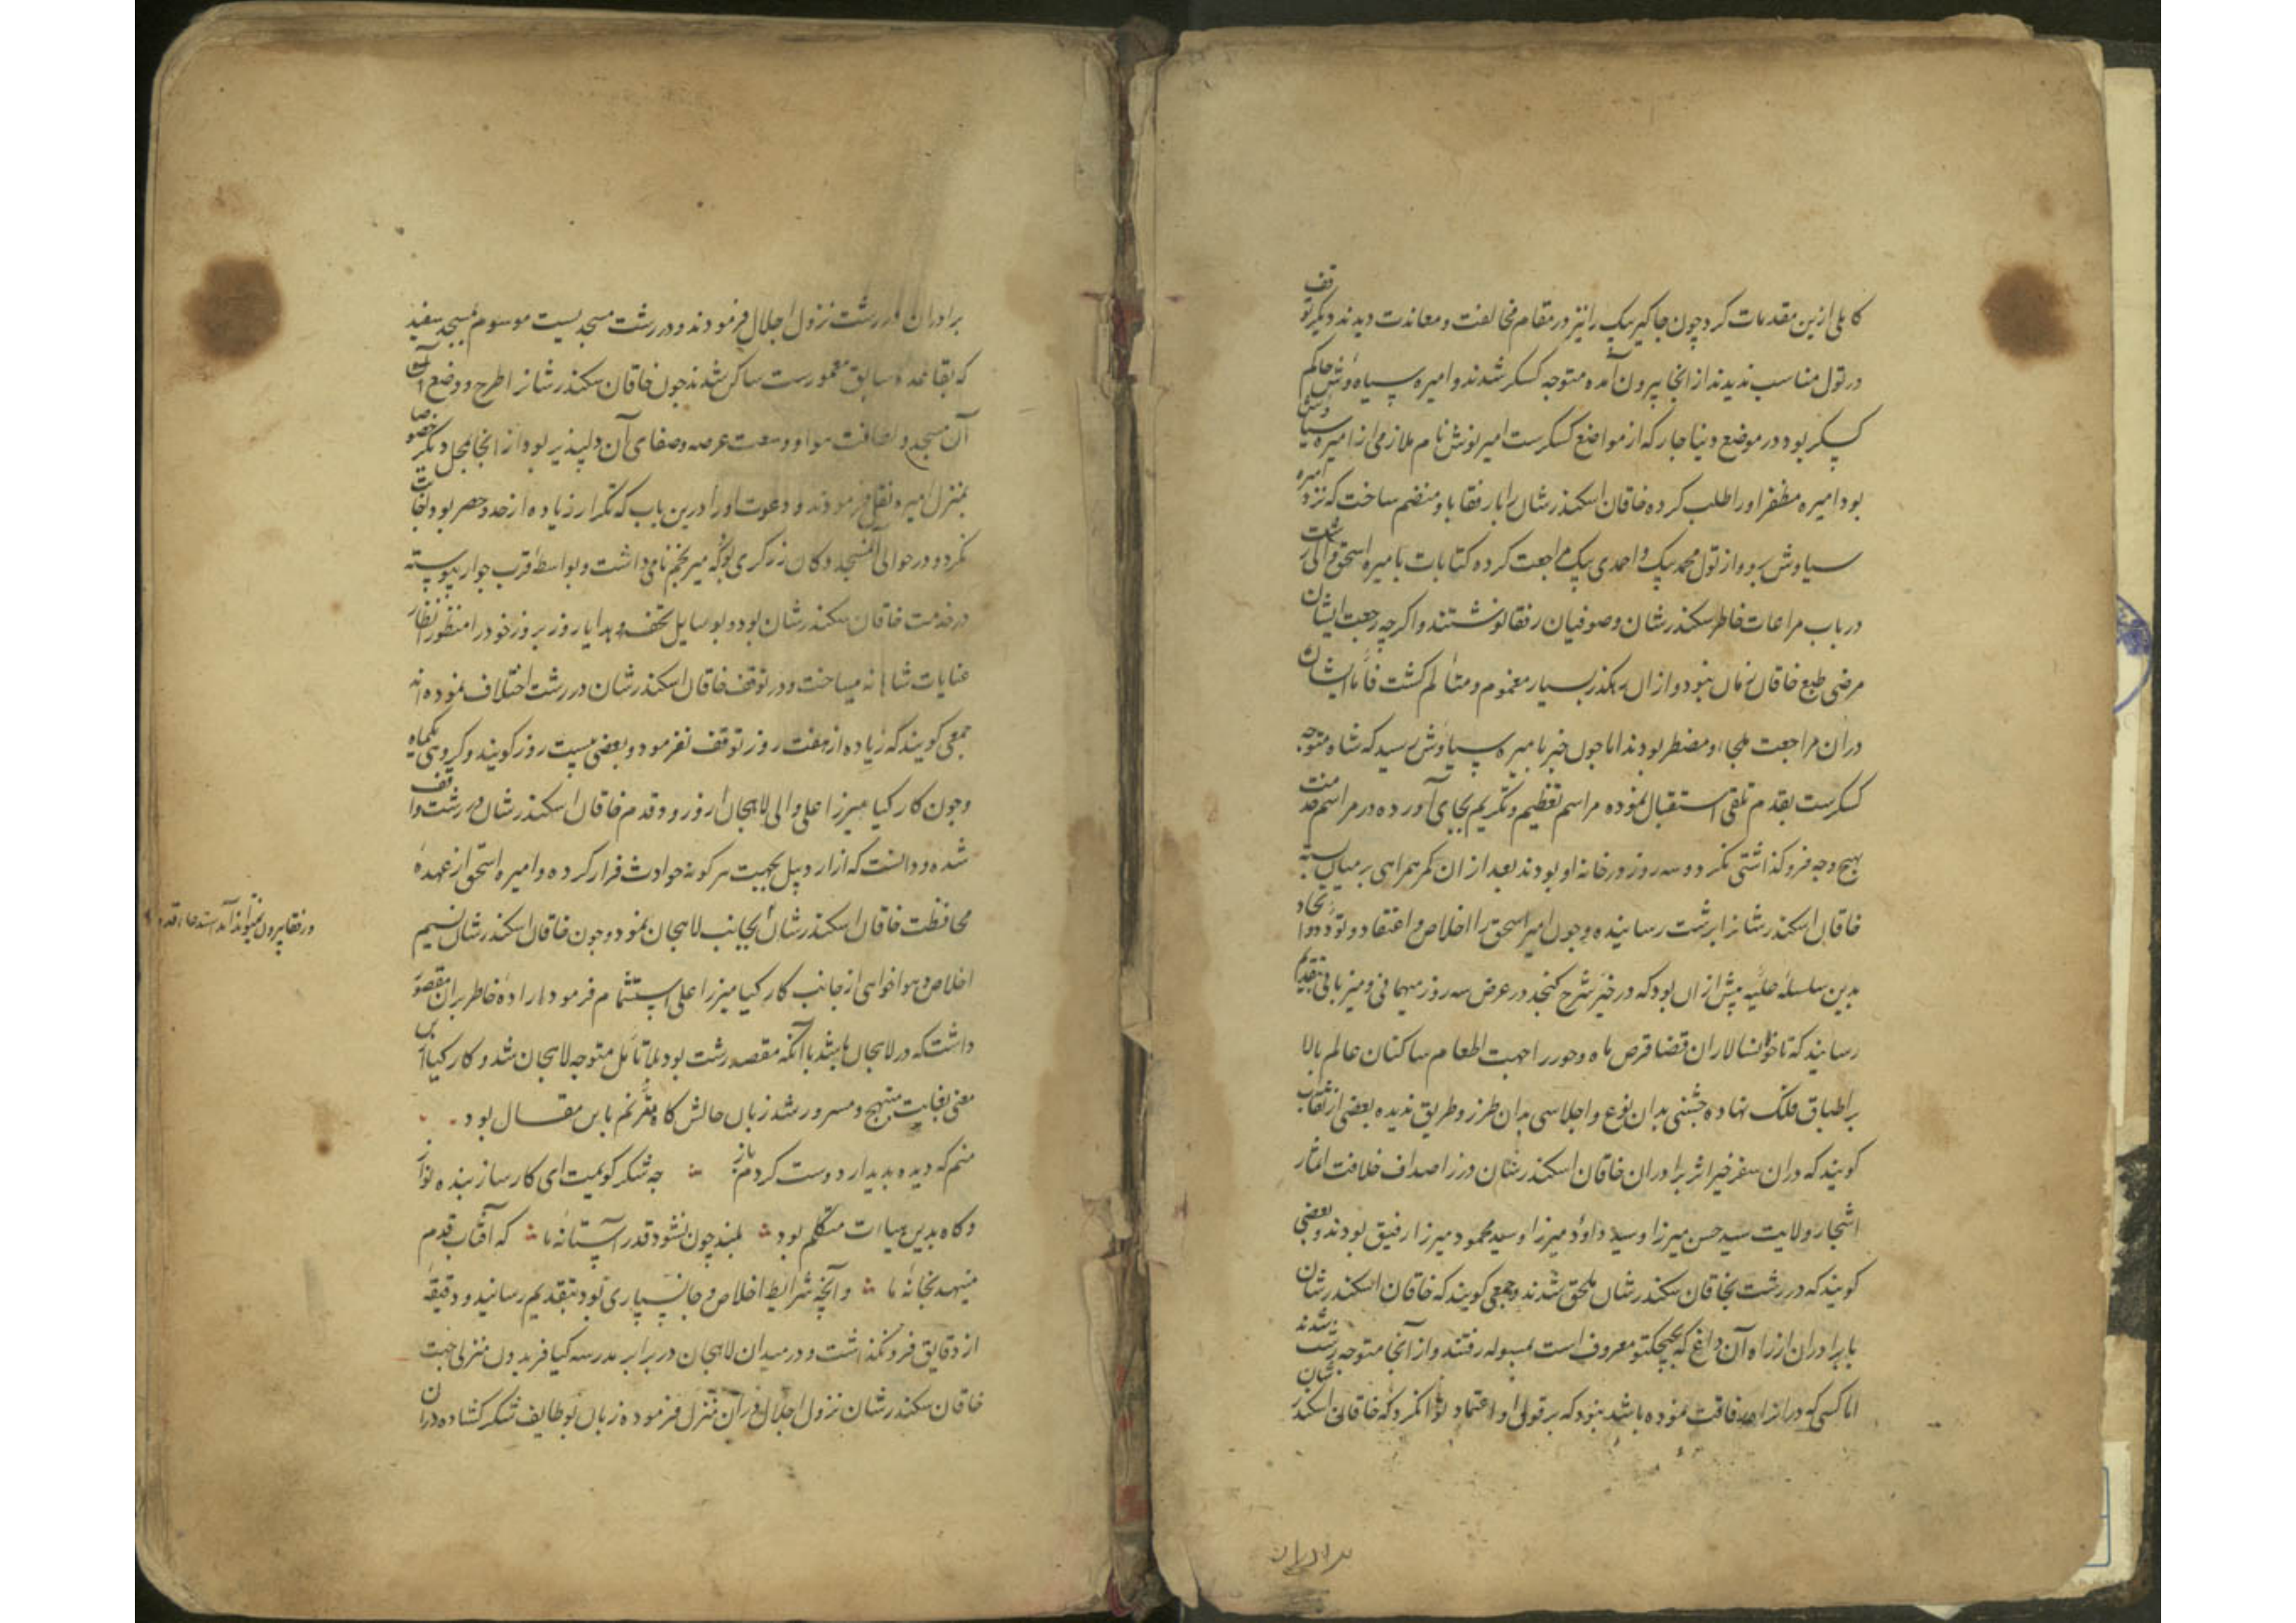 کاملی ازین مقدمات کرد چون جاکیر بیک را نیز در مقام مخالفت و معاندت دیدند دیگر توقف
در تول مناسب ندیدند از انجا بیرون آمده متوجه کسکر شدند و امیره سیاوش حاکم
کسکر بود در موضع دنیاجار که از مواضع کسکرست امیر نوش نام ملازمی از امیره سیاوش
بود امیره مظفر او را طلب کرده خاقان اسکندرشان را با رفقا باو منضم ساخت که نزد امیره
سیاوش برد و از تول محمد بیک و احمدی بیک مراجعت کرده کتابات بامیره اسحق والی رشت
در باب مراعات خاطر سکندرشان و صوفیان رفقا نوشتند و اگرچه رجعت ایشان
مرضی طبع خاقان زمان نبود و از ان رهکذر بسیار مغموم و متالم کشت فاما ایشان
در ان مراجعت ملجاء و مضطر بودند اما چون خبر بامیره سیاوش رسید که شاه متوجه
کسکرست بقدم تلقی استقبال نموده مراسم تعظیم و تکریم بجای آورده در مراسم خدمت
بهیچ وجه فروکذاشتی نکرد و سه روز در خانه او بودند بعد از ان کمر همراهی بر میان بسته
خاقان اسکندرشانرا برشت رسانیده و چون امیر اسحق را اخلاص و اعتقاد و تودد و اتحاد
بدین سلسله علیه پیش از ان بود که در حیز شرح کنجد در عرض سه روز میهمانی و میزبانی بتقدیم
رسانید که تا خوانسالاران قضا قرص ماه و خور را جهت اطعام ساکنان عالم بالا
بر اطباق فلک نهاده جشنی بدان نوع و اجلاسی بدان طرز و طریق ندیده بعضی از ثقات
کویند که در ان سفر خیر اثر برادران خاقان اسکندرشان درر اصداف خلافت اثمار
اشجار ولایت سید حسن میرزا و سید داود میرزا و سید محمود میرزا رفیق بودند و بعضی
کویند که در رشت بخاقان سکندرشان ملحق شدند و جمعی کویند که خاقان اسکندرشان
با برادران از راه آن داغ که معروف است رفتند و از آنجا متوجه رشت شدند
اما کسی که در انراه رفاقت نموده باشد نبود که بر قول او اعتماد توان کرد که خاقان اسکندرشان
برادران
برادران در رشت نزول اجلال فرمودند و در رشت مسجدیست موسوم بمسجد سفید
که بقاعده سابق معمورست ساکن شدند چون خاقان سکندرشانرا طرح و وضع
آن مسجد و لطافت هوا و وسعت عرصه و صفای آن دلپذیر بود از انجا بمحل دیگر خصوصا
بمنزل امیره نقل نفرمودند و دعوت او را درین باب که تکرار زیاده از حد و حصر بود اجابت
نکرد و در حوالی آنمسجد دکان زرکری بود که میر نجم نامی داشت و بواسطه قرب جوار پیوسته
در خدمت خاقان سکندرشان بود و بوسایل تحف و هدایا روز بروز خود را منظور انظار
عنایات شاهانه میساخت و در توقف خاقان اسکندرشان در رشت اختلاف نموده اند
جمعی کویند که زیاده از هفت روز توقف نفرمود و بعضی بیست روز کویند و کروهی یکماه
و چون کارکیا میرزا علی والی لاهجان از ورود قدم خاقان اسکندرشان در رشت واقف
شده و دانست که از اردبیل بجهت هرکونه حوادث فرار کرده و امیره اسحق از عهده
محافظت خاقان اسکندرشان بجانب لاهجان نمود و چون خاقان اسکندرشان نسیم
اخلاص و هواخواهی از جانب کارکیا میرزا علی استشمام فرمود اراده خاطر بران مقصور
داشت که در لاهجان باشد با آنکه مقصد رشت بود بلا تامل متوجه لاهجان شد و کارکیا ازین
معنی بغایت مبتهج و مسرور شد زبان حالش کاه مترنم باین مقال بود
منم که دیده بدیدار دوست کردم باز چه شکر کویمت ای کارساز بنده نواز
و کاه بدین مبیات متکلم بود بلند چون نشود قدر آستانه ما که آفتاب قدم
مینهد بخانه ما و آنچه شرایط اخلاص و جانسپاری بود بتقدیم رسانید و دقیقه
از دقایق فرو نکذاشت و در میدان لاهجان در برابر مدرسه کیا فریدون منزلی جهت
خاقان سکندرشان نزول اجلال در آن منزل فرموده زبان بوظایف شکر کشاده در ان